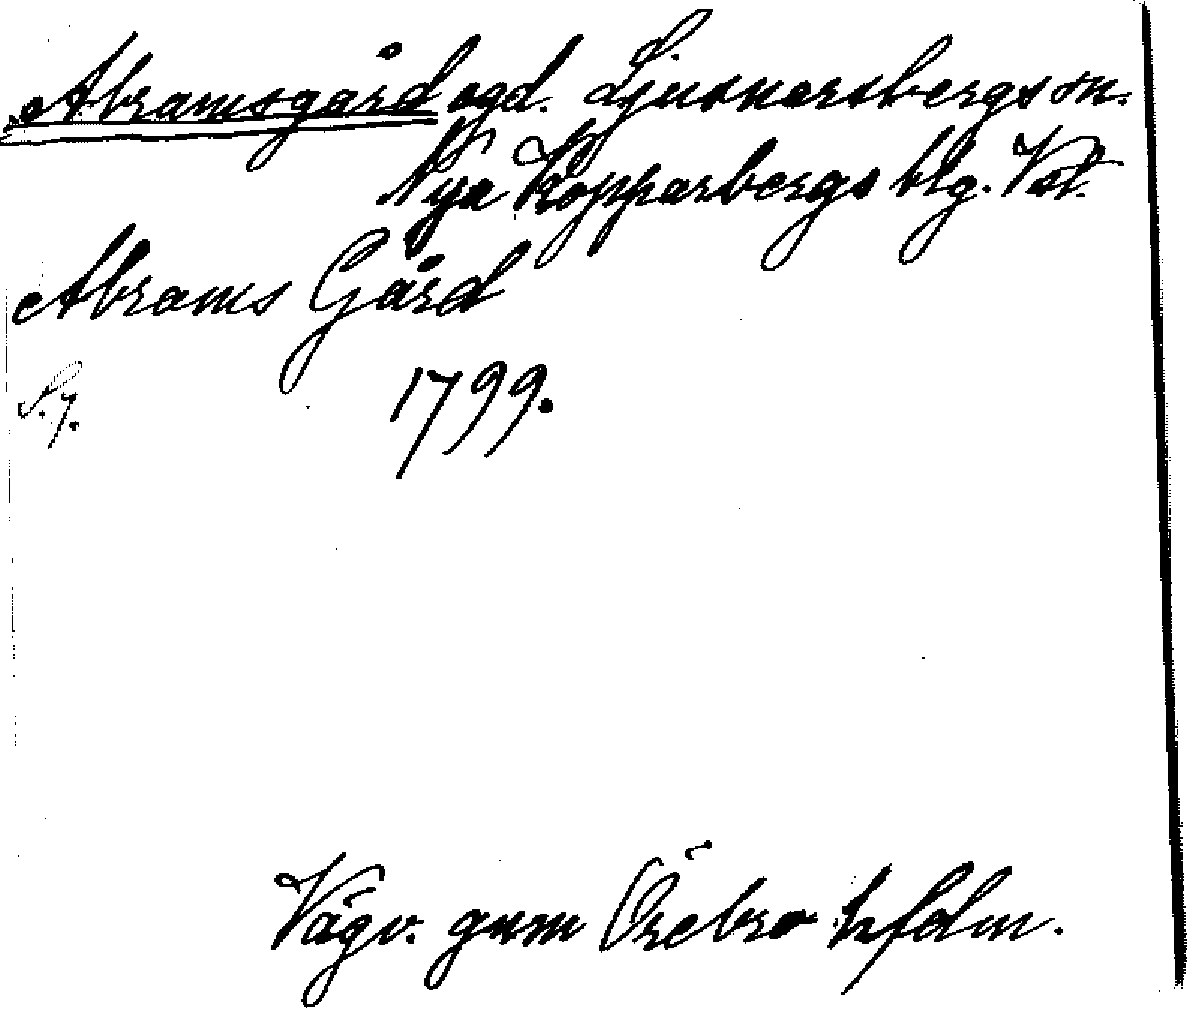 Abramsgård ogd. Ljusnarsbergs sn.
Nya Kopparbergs blg. Vstl.
Abrams Gård
S. 7. 1799.
Vägv. gnm Örebro hfdm.